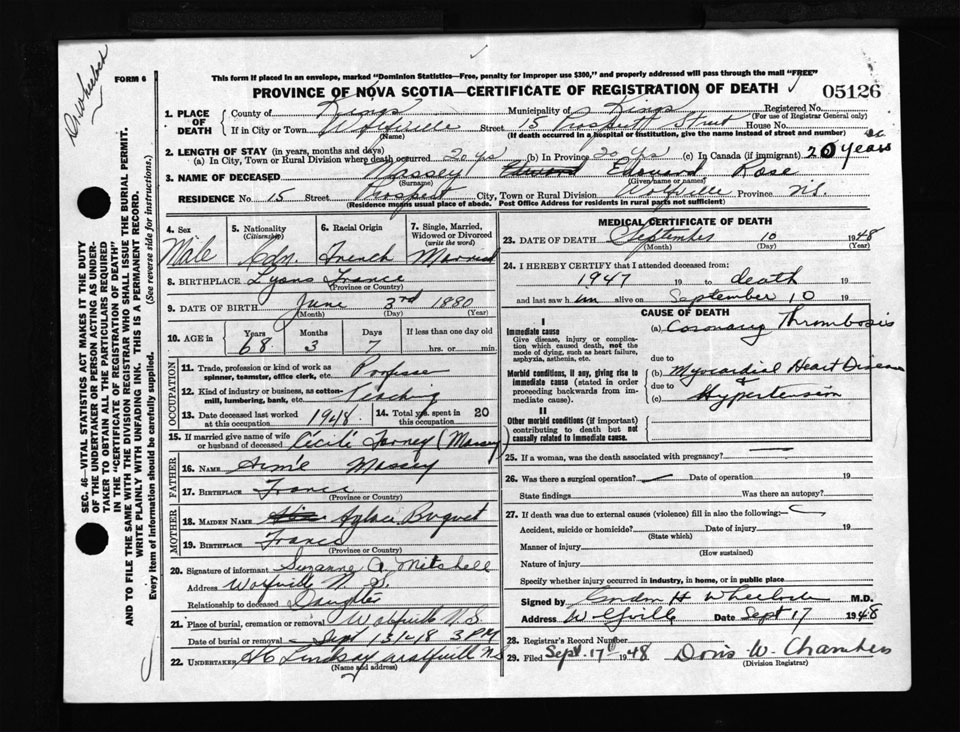 D. Wheelock
FORM 6
This form if placed in an envelope, marked "Dominion Statistics—Free, penalty for improper use $300," and properly addressed will pass through the mail "FREE"
PROVINCE OF NOVA SCOTIA—CERTIFICATE OF REGISTRATION OF DEATH 05126
1. PLACE OF DEATH
County of Kings Municipality of Kings Registered No.
(For use of Registrar General only)
If in City or Town Wolfville Street 15 Prospect Street House No.
(Name) (If death occurred in a hospital or institution, give the name instead of street and number)
2. LENGTH OF STAY (in years, months and days)
(a) In City, Town or Rural Division where death occurred 20 ys (b) In Province 20 ys (c) In Canada (if immigrant) 20 years
3. NAME OF DECEASED Massey Edward Edouard Rose
(Surname) (Given name or names)
RESIDENCE No. 15 Street Prospect City, Town or Rural Division Wolfville Province N.S.
(Residence means usual place of abode. Post Office Address for residents in rural parts not sufficient)
4. Sex Male
5. Nationality (Citizenship) Cdn.
6. Racial Origin French
7. Single, Married, Widowed or Divorced (write the word) Married
8. BIRTHPLACE Lyons France
(Province or Country)
9. DATE OF BIRTH June 3rd 1880
(Month) (Day) (Year)
10. AGE in Years 68 Months 3 Days 7 If less than one day old hrs. or min.
OCCUPATION
11. Trade, profession or kind of work as spinner, teamster, office clerk, etc. Professor
12. Kind of industry or business, as cotton-mill, lumbering, bank, etc. Teaching
13. Date deceased last worked at this occupation 1948 14. Total yrs. spent in 20
15. If married give name of wife or husband of deceased Cécile (Massey)
FATHER
16. NAME Aimé Massey
17. BIRTHPLACE France
(Province or Country)
MOTHER
18. MAIDEN NAME Buquet
19. BIRTHPLACE France
(Province or Country)
20. Signature of informant Suzanne A. Mitchell
Address Wolfville N. S.
Relationship to deceased Daughter
21. Place of burial, cremation or removal Wolfville N.S.
Date of burial or removal Sept 13 1948 3 PM
22. UNDERTAKER Lindsay Wolfville N.S.
(Name and address)
MEDICAL CERTIFICATE OF DEATH
23. DATE OF DEATH September 10 1948
(Month) (Day) (Year)
24. I HEREBY CERTIFY that I attended deceased from:
1947 19 to death 19
and last saw h im alive on September 10 19
CAUSE OF DEATH
I
Immediate cause
Give disease, injury or complication which caused death, not the mode of dying, such as heart failure, asphyxia, asthenia, etc.
(a) Coronary Thrombosis
due to
Morbid conditions, if any, giving rise to immediate cause (stated in order proceeding backwards from immediate cause).
(b) Myocardial Heart Disease
due to &
(c) Hypertension
II
Other morbid conditions (if important) contributing to death but not causally related to immediate cause.
25. If a woman, was the death associated with pregnancy?
26. Was there a surgical operation? Date of operation 19
State findings Was there an autopsy?
27. If death was due to external causes (violence) fill in also the following:
Accident, suicide or homicide? Date of injury 19
(State which)
Manner of injury
(How sustained)
Nature of injury
Specify whether injury occurred in industry, in home, or in public place
Signed by Gordon H Wheelock M.D.
Address Wolfville Date Sept 17 1948
28. Registrar's Record Number
29. Filed Sept. 17 1948 Doris W. Chambers
(Division Registrar)
SEC. 46—VITAL STATISTICS ACT MAKES IT THE DUTY OF THE UNDERTAKER OR PERSON ACTING AS UNDERTAKER TO OBTAIN ALL THE PARTICULARS REQUIRED IN THE "CERTIFICATE OF REGISTRATION OF DEATH" AND TO FILE THE SAME WITH THE DIVISION REGISTRAR WHO SHALL ISSUE THE BURIAL PERMIT.
WRITE PLAINLY WITH UNFADING INK. THIS IS A PERMANENT RECORD.
Every item of information should be carefully supplied. (See reverse side for instructions.)